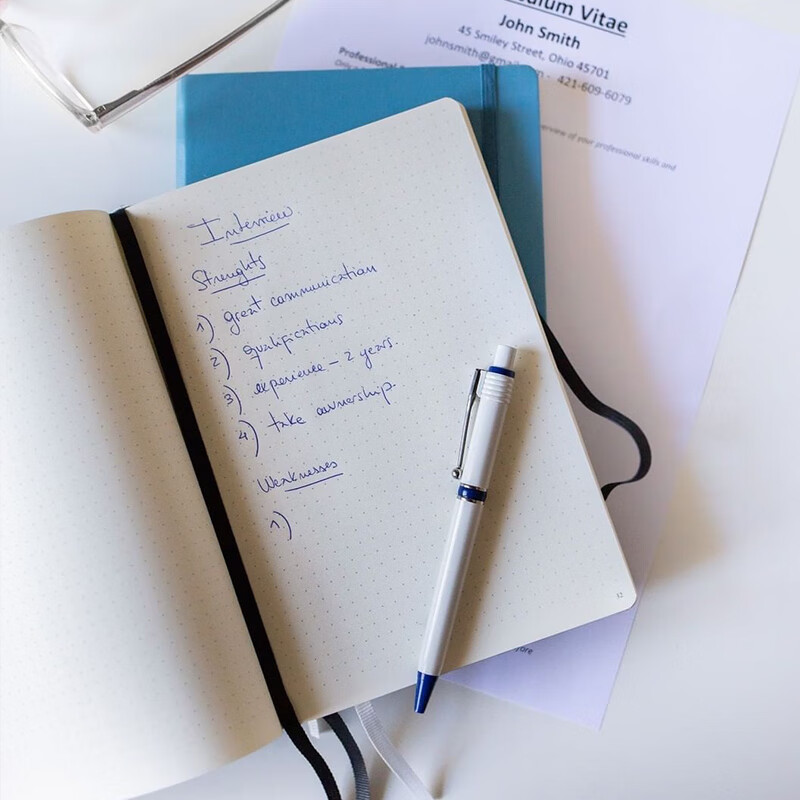 Vitae
John Smith
45 Smiley Street, Ohio 45701
421-609-6079
Professional
overview of your professional skills and
Interview
Strenghts
1) great communication
2) qualifications
3) experience - 2 years.
4) take ownership.
Weaknesses
1)
32